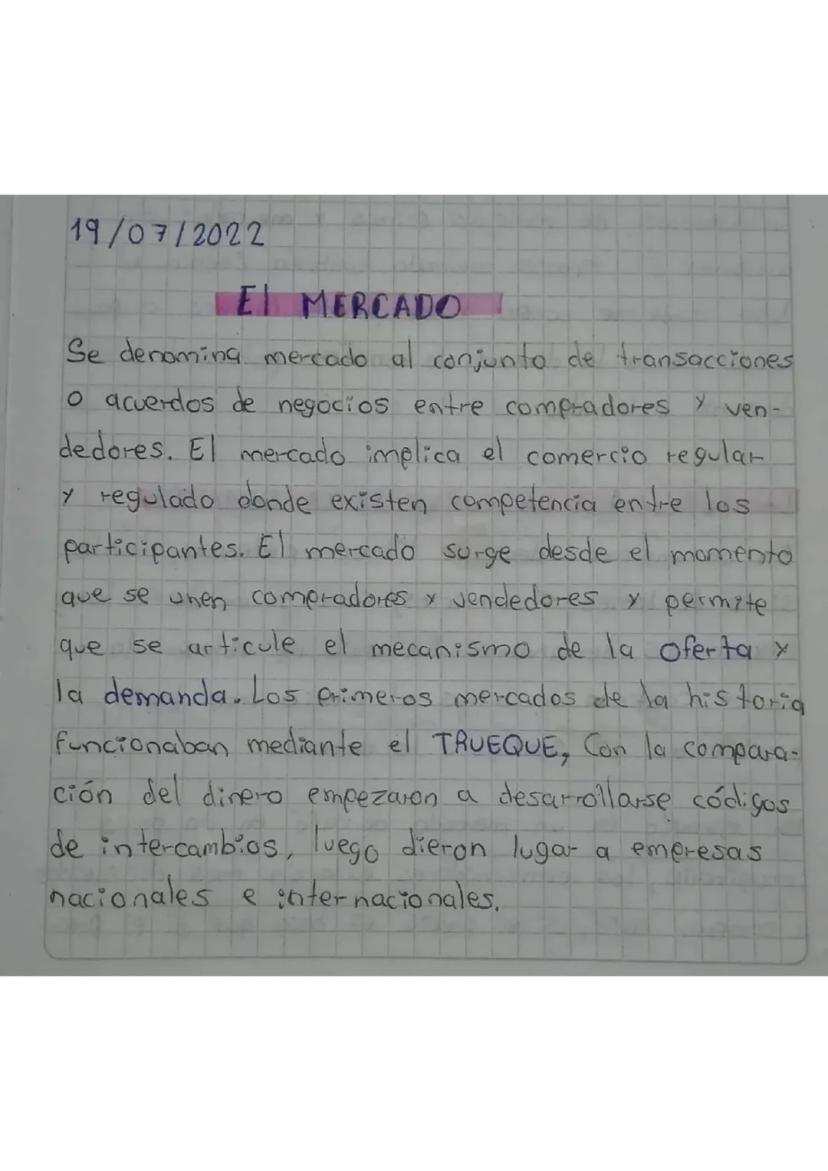 19/07/2022
El MERCADO
Se denomina mercado al conjunto de transacciones
o acuerdos de negocios entre compradores y ven-
dedores. El mercado implica el comercio regular
y regulado donde existen competencia entre los
participantes. El mercado surge desde el momento
que se unen compradores y vendedores y permite
que se articule el mecanismo de la oferta y
la demanda. Los primeros mercados de la historia
funcionaban mediante el TRUEQUE, Con la compara-
ción del dinero empezaron a desarrollarse códigos
de intercambios, luego dieron lugar a empresas
nacionales e internacionales.